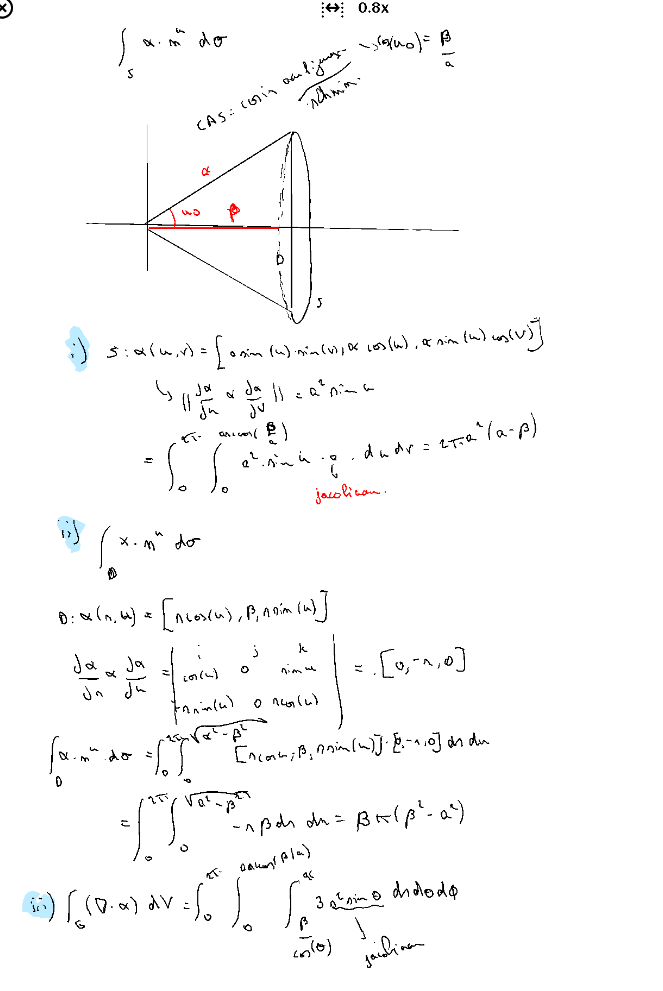 0.8x
∫_S x · n^u dσ
cos(u0) = β/a
CAS =
a
u0 β
D
S
i) S: α(u,v) = [a sin(u) · sin(v), a cos(u), a sin(u) cos(v)]
↳ ||dα/du × dα/dv|| = a² sin u
= ∫_0^{2π} ∫_0^{arccos(β/a)} a² · sin u · a · du dv = 2π a² (a-β)
jacobian.
ii) ∫_D x · n^u dσ
D: α(r,u) = [r cos(u), β, r sin(u)]
dα/dr × dα/du = | i j k | = · [0, -r, 0]
cos(u) 0 sin u
-r sin(u) 0 r cos(u)
∫_D x · n^u · dσ = ∫_0^{2π} ∫_0^{√(a²-β²)} [r cos u, β, r sin(u)] · [0, -r, 0] dr du
= ∫_0^{2π} ∫_0^{√(a²-β²)} -r β dr du = β π (β² - a²)
iii) ∫_G (∇ · x) dV = ∫_0^{2π} ∫_0^{arccos(β/a)} ∫_{β/cos(θ)}^{a} 3 r² sin θ dr dθ dφ
jacobian